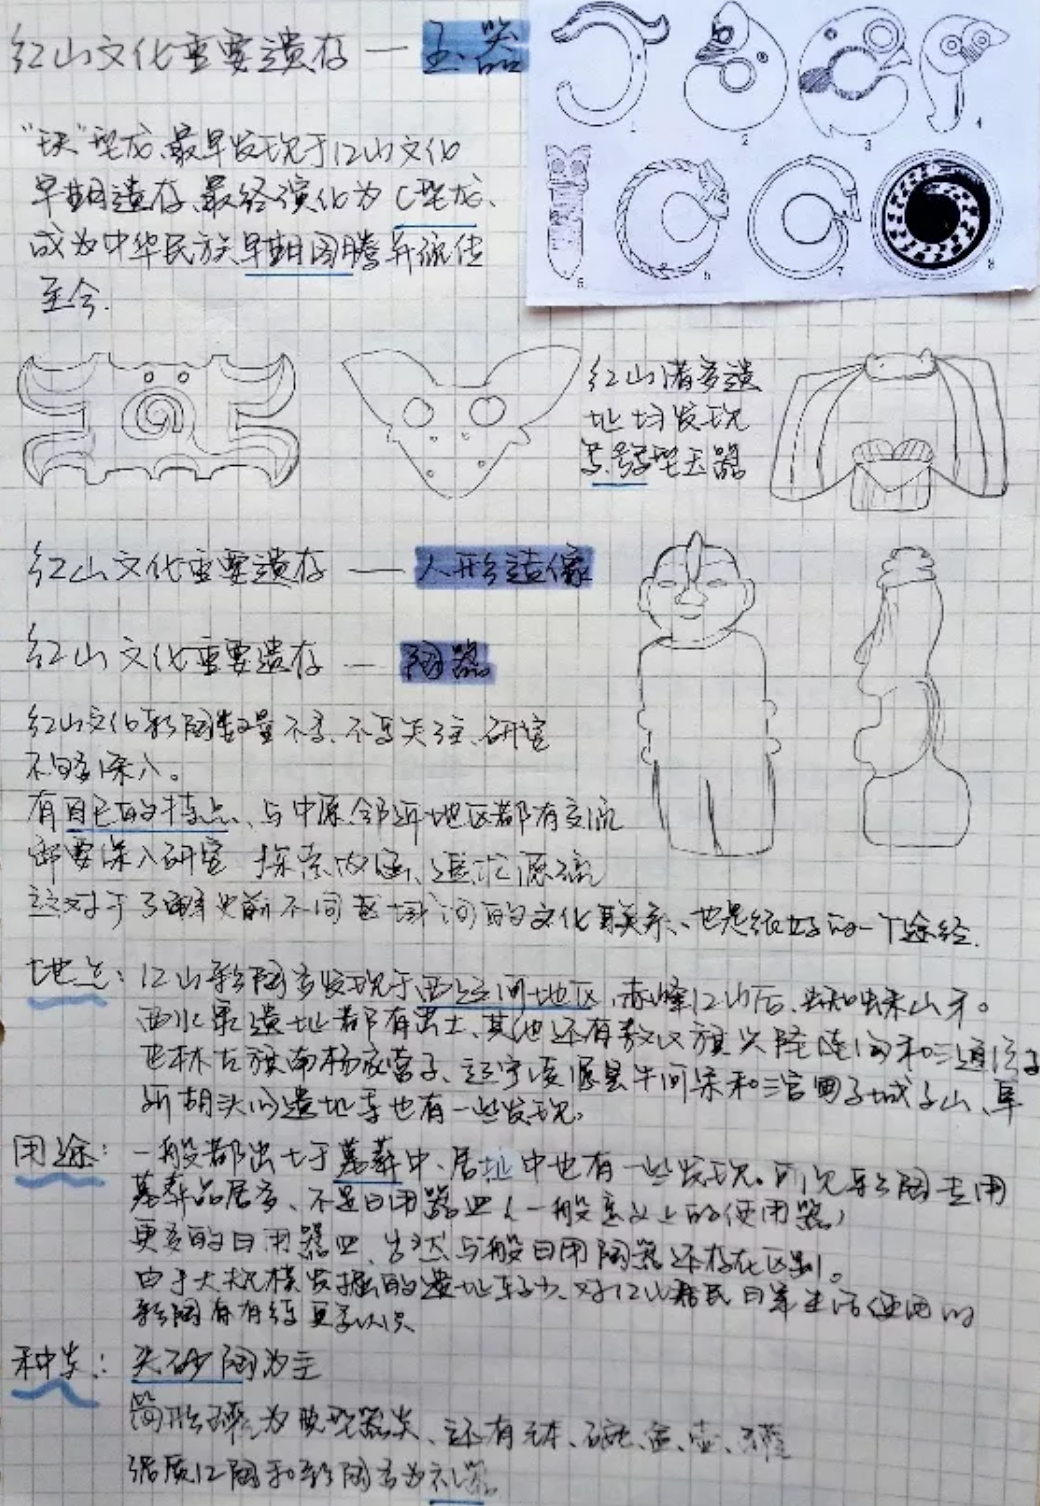 红山文化重要遗存 — 玉器
1 2 3 4
5 6 7 8
"玦"型龙,最早发现于红山文化
早期遗存、最终演化为C型龙、
成为中华民族早期图腾并流传
至今.
红山诸多遗
址均发现
型玉器
红山文化重要遗存 — 人形造像
红山文化重要遗存 — 陶器
红山文化彩陶数量不多、不受关注、研究
不够深入。
有自己的特点、与中原邻近地区都有交流
需要深入研究 探索内涵、追求源流
这对于了解史前不同区域间的文化联系、也是很好的一个途经.
地点: 红山彩陶多发现于西辽河地区,赤峰红山后、蜘蛛山等。
西水泉遗址都有出土、其他还有敖汉旗兴隆洼和三道湾子
巴林右旗南杨家营子、辽宁凌源县牛河梁和三官甸子城子山、阜
新胡头沟遗址等也有一些发现。
用途: 一般都出土于墓葬中、居址中也有一些发现。可见彩陶专用
墓葬品居多、不是日用器皿(一般意义上的使用器)
更多的日用器皿、当然与一般日用陶器还存在区别。
由于大规模发掘的遗址较少、对红山居民日常生活使用的
彩陶有待
种类: 夹砂陶为主
筒形罐为典型器类、还有钵、碗、盆、壶、罐
泥质红陶和彩陶多为礼器